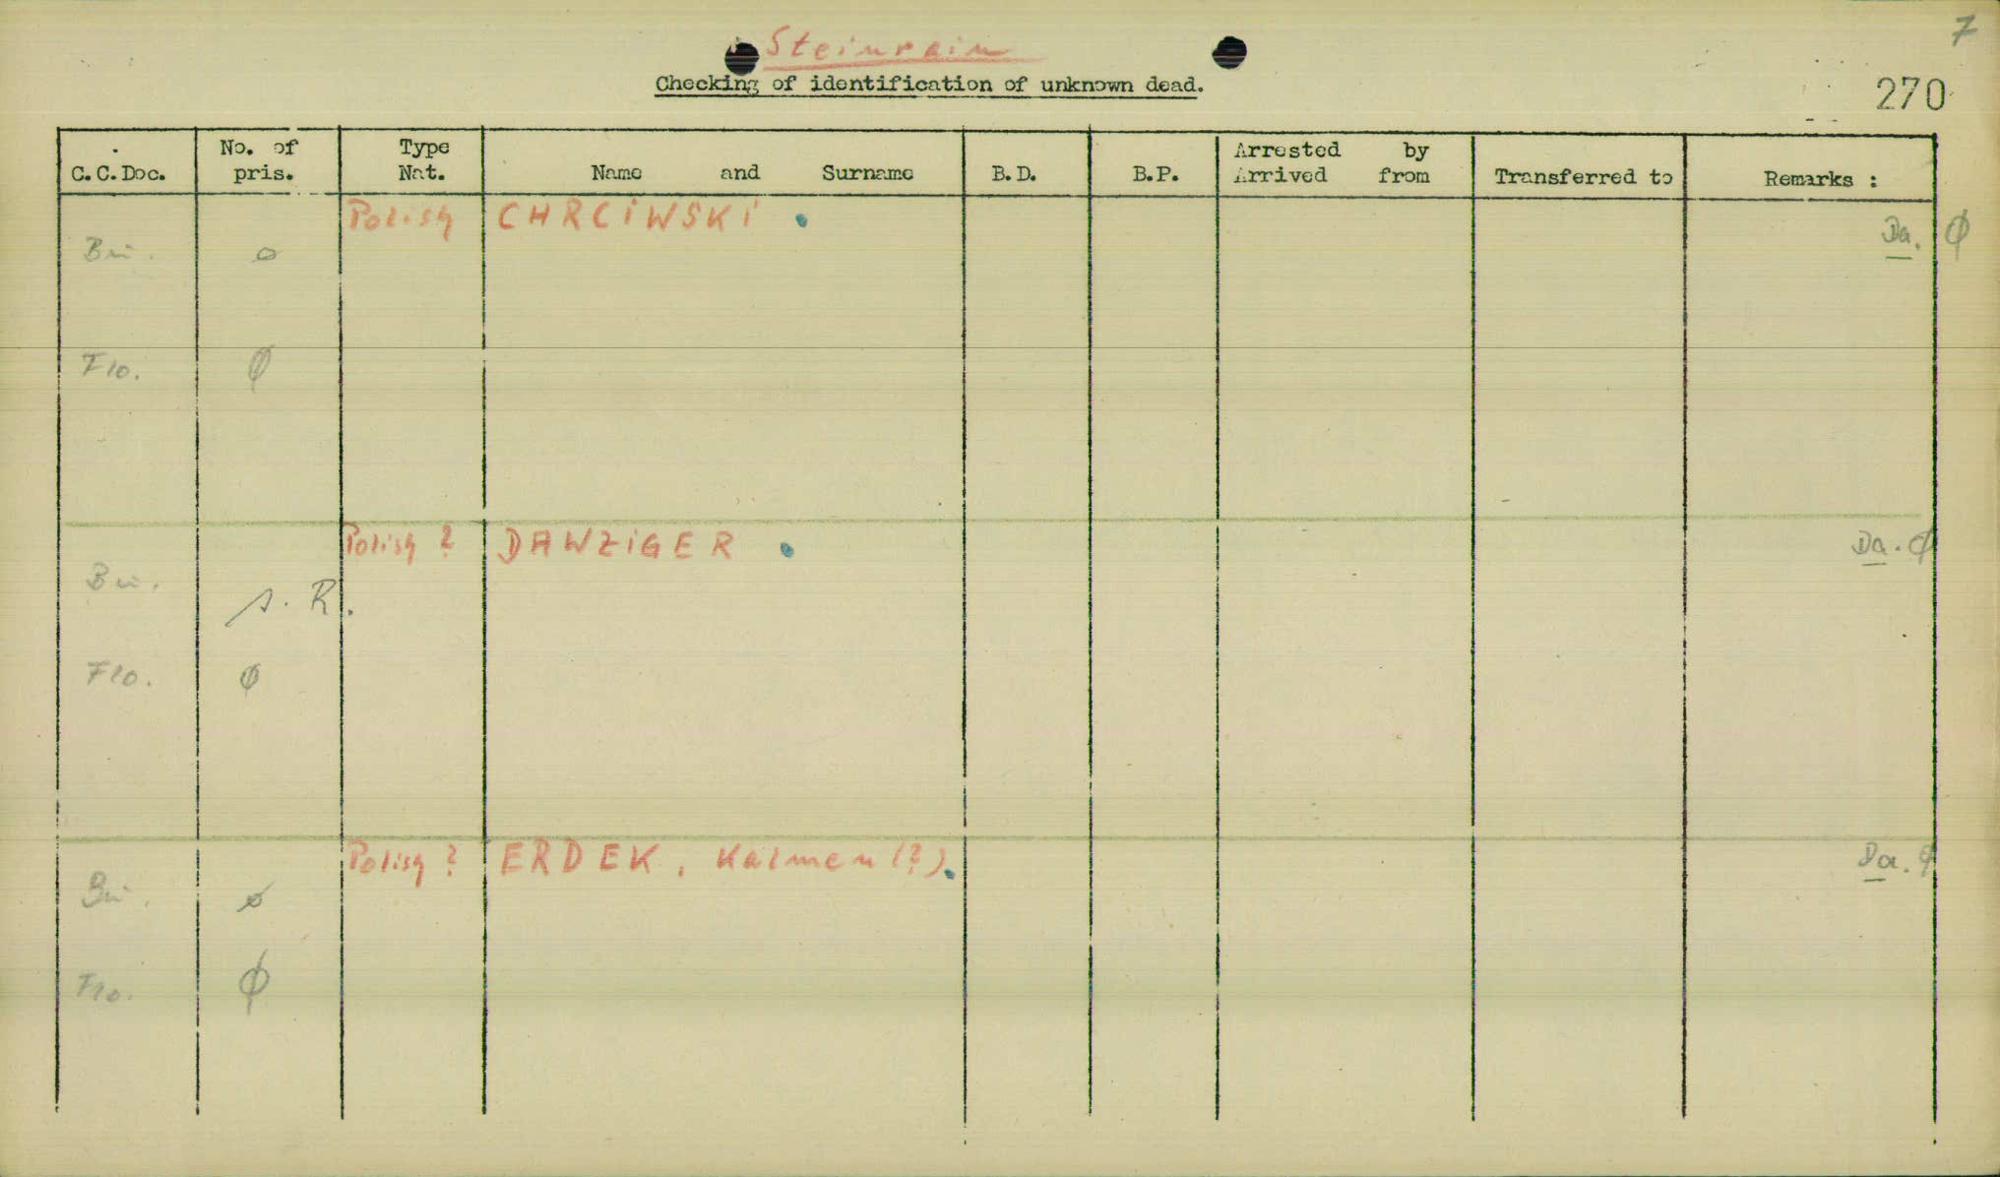 7
Steinrain
Checking of identification of unknown dead.
270
C.C.Doc. No. of pris. Type Nat. Name and Surname B.D. B.P. Arrested by Arrived from Transferred to Remarks :
Polish CHRCIWSKI . Da. Ø
Bu. o
Flo. Ø
Polish ? DAWZIGER . Da. Ø
Bu. s. R.
Flo. Ø
Polish ? ERDEK, Kalmen (?). Da. Ø
Bu. Ø
Flo. Ø